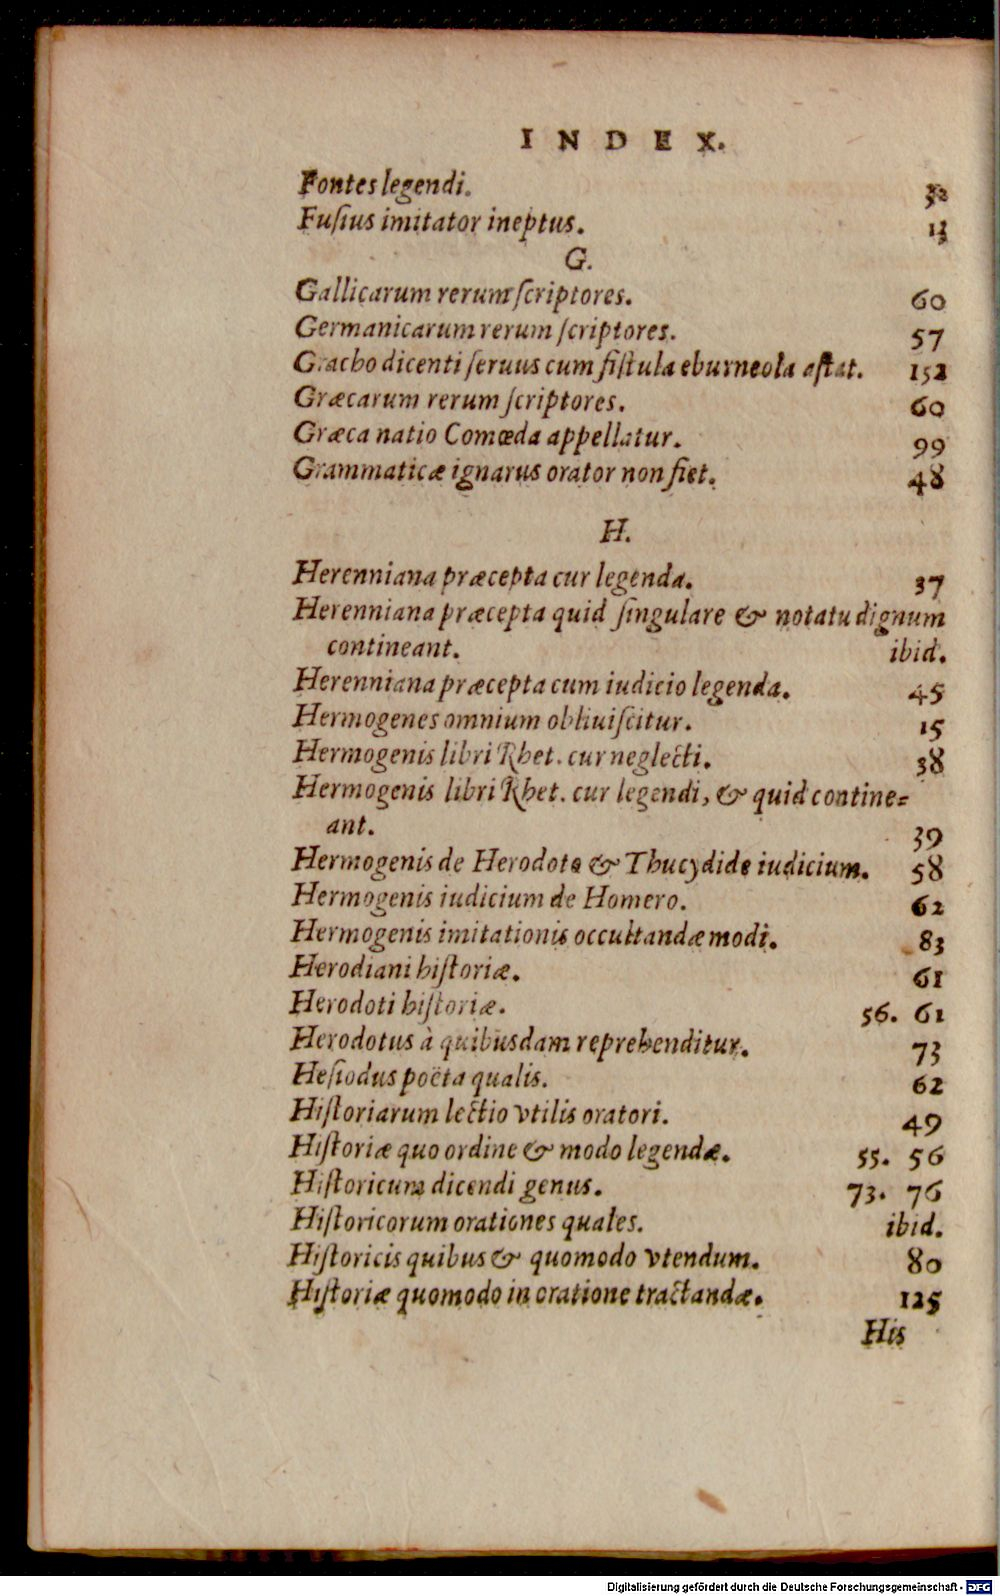 INDEX.
Fontes legendi. 32
Fuſius imitator ineptus. 13
G.
Gallicarum rerum ſcriptores. 60
Germanicarum rerum ſcriptores. 57
Gracho dicenti ſeruus cum fiſtula eburneola aſtat. 152
Græcarum rerum ſcriptores. 60
Græca natio Comœda appellatur. 99
Grammaticæ ignarus orator non fiet. 48
H.
Herenniana præcepta cur legenda. 37
Herenniana præcepta quid ſingulare & notatu dignum
contineant. ibid.
Herenniana præcepta cum iudicio legenda. 45
Hermogenes omnium obliuiſcitur. 15
Hermogenis libri Rhet. cur neglecti. 38
Hermogenis libri Rhet. cur legendi, & quid contine=
ant. 39
Hermogenis de Herodoto & Thucydide iudicium. 58
Hermogenis iudicium de Homero. 62
Hermogenis imitationis occultandæ modi. 83
Herodiani hiſtoriæ. 61
Herodoti hiſtoriæ. 56. 61
Herodotus à quibusdam reprehenditur. 73
Heſiodus poëta qualis. 62
Hiſtoriarum lectio vtilis oratori. 49
Hiſtoriæ quo ordine & modo legendæ. 55. 56
Hiſtoricum dicendi genus. 73. 76
Hiſtoricorum orationes quales. ibid.
Hiſtoricis quibus & quomodo vtendum. 80
Hiſtoriæ quomodo in oratione tractandæ. 125
His
Digitalisierung gefördert durch die Deutsche Forschungsgemeinschaft - DFG